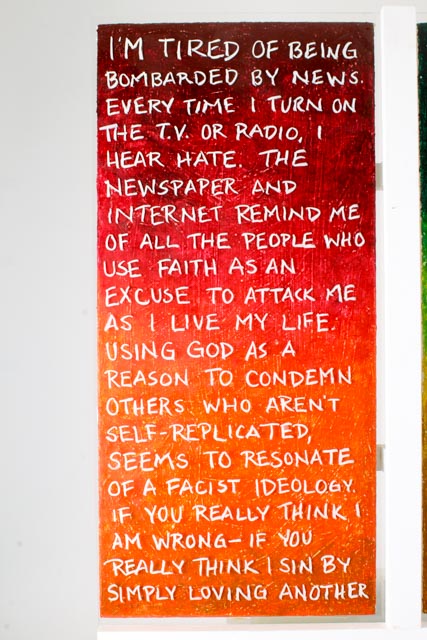 I'M TIRED OF BEING
BOMBARDED BY NEWS.
EVERY TIME I TURN ON
THE T.V. OR RADIO, I
HEAR HATE. THE
NEWSPAPER AND
INTERNET REMIND ME
OF ALL THE PEOPLE WHO
USE FAITH AS AN
EXCUSE TO ATTACK ME
AS I LIVE MY LIFE.
USING GOD AS A
REASON TO CONDEMN
OTHERS WHO AREN'T
SELF-REPLICATED,
SEEMS TO RESONATE
OF A FACIST IDEOLOGY.
IF YOU REALLY THINK I
AM WRONG—IF YOU
REALLY THINK I SIN BY
SIMPLY LOVING ANOTHER